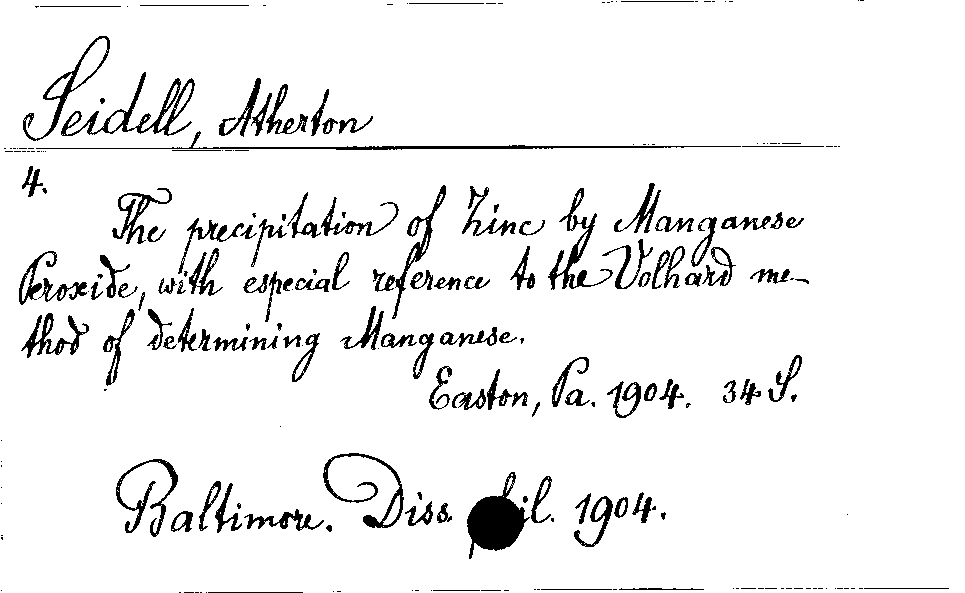 Seidell, Atherton
4.
The precipitation of Zinc by Manganese
Peroxide, with especial reference to the Volhard me-
thod of determining Manganese.
Easton, Pa. 1904. 34 S.
Baltimore. Diss. 1904.